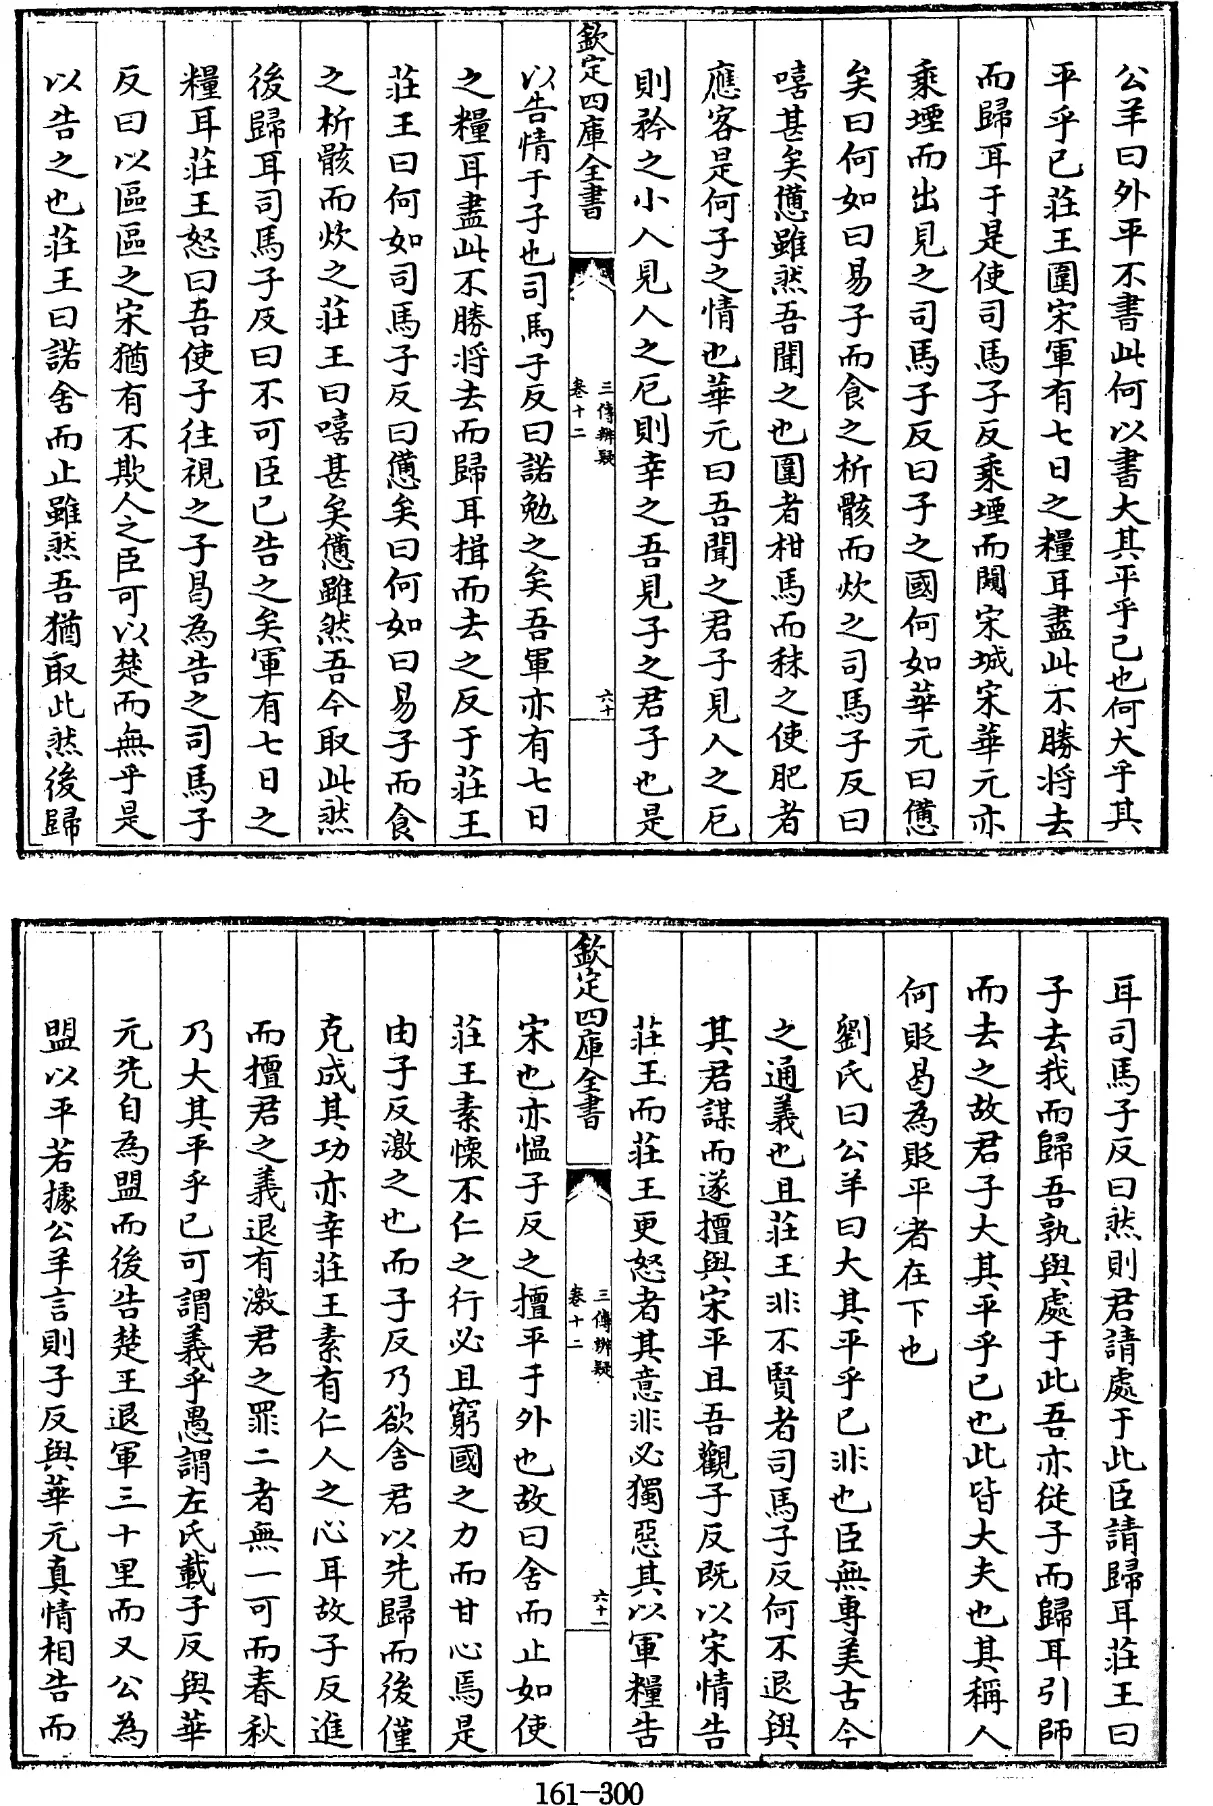 公羊曰外平不書此何以書大其平乎已也何大乎其
平乎已莊王圍宋軍有七日之糧耳盡此不勝将去
而歸耳于是使司馬子反乘堙而闚宋城宋華元亦
乘堙而出見之司馬子反曰子之國何如華元曰憊
矣曰何如曰易子而食之析骸而炊之司馬子反曰
嘻甚矣憊雖然吾聞之也圍者柑馬而秣之使肥者
應客是何子之情也華元曰吾聞之君子見人之厄
則矜之小人見人之厄則幸之吾見子之君子也是
欽定四庫全書
三傳辨疑
卷十二
六十
以告情于子也司馬子反曰諾勉之矣吾軍亦有七日
之糧耳盡此不勝将去而歸耳揖而去之反于莊王
莊王曰何如司馬子反曰憊矣曰何如曰易子而食
之析骸而炊之莊王曰嘻甚矣憊雖然吾今取此然
後歸耳司馬子反曰不可臣已告之矣軍有七日之
糧耳莊王怒曰吾使子往視之子曷為告之司馬子
反曰以區區之宋猶有不欺人之臣可以楚而無乎是
以告之也莊王曰諾舍而止雖然吾猶取此然後歸
耳司馬子反曰然則君請處于此臣請歸耳莊王曰
子去我而歸吾孰與處于此吾亦從子而歸耳引師
而去之故君子大其平乎已也此皆大夫也其稱人
何貶曷為貶平者在下也
劉氏曰公羊曰大其平乎已非也臣無專美古今
之通義也且莊王非不賢者司馬子反何不退與
其君謀而遂擅與宋平且吾觀子反既以宋情告
莊王而莊王更怒者其意非必獨惡其以軍糧告
欽定四庫全書
三傳辨疑
卷十二
六十一
宋也亦愠子反之擅平于外也故曰舍而止如使
莊王素懷不仁之行必且窮國之力而甘心焉是
由子反激之也而子反乃欲舍君以先歸而後僅
克成其功亦幸莊王素有仁人之心耳故子反進
而擅君之義退有激君之罪二者無一可而春秋
乃大其平乎已可謂義乎愚謂左氏載子反與華
元先自為盟而後告楚王退軍三十里而又公為
盟以平若據公羊言則子反與華元真情相告而
161-300